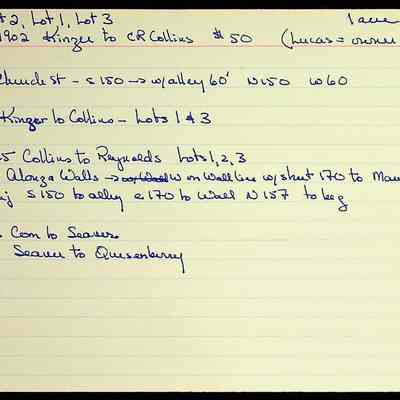 t 2, Lot 1, Lot 3 1 acre
1902 Kinzer to CR Collins $50 (Lucas = owner
Church St - S 150 → w/alley 60' N 150 W 60
Kinzer to Collins - Lots 1 & 3
5 Collins to Reynolds Lots 1, 2, 3
Alonza Walls → W on Wall line w/street 170 to
S 150 to alley E 170 to Wall N 157 to beg
Com to Seaver
Seaver to Quesenberry